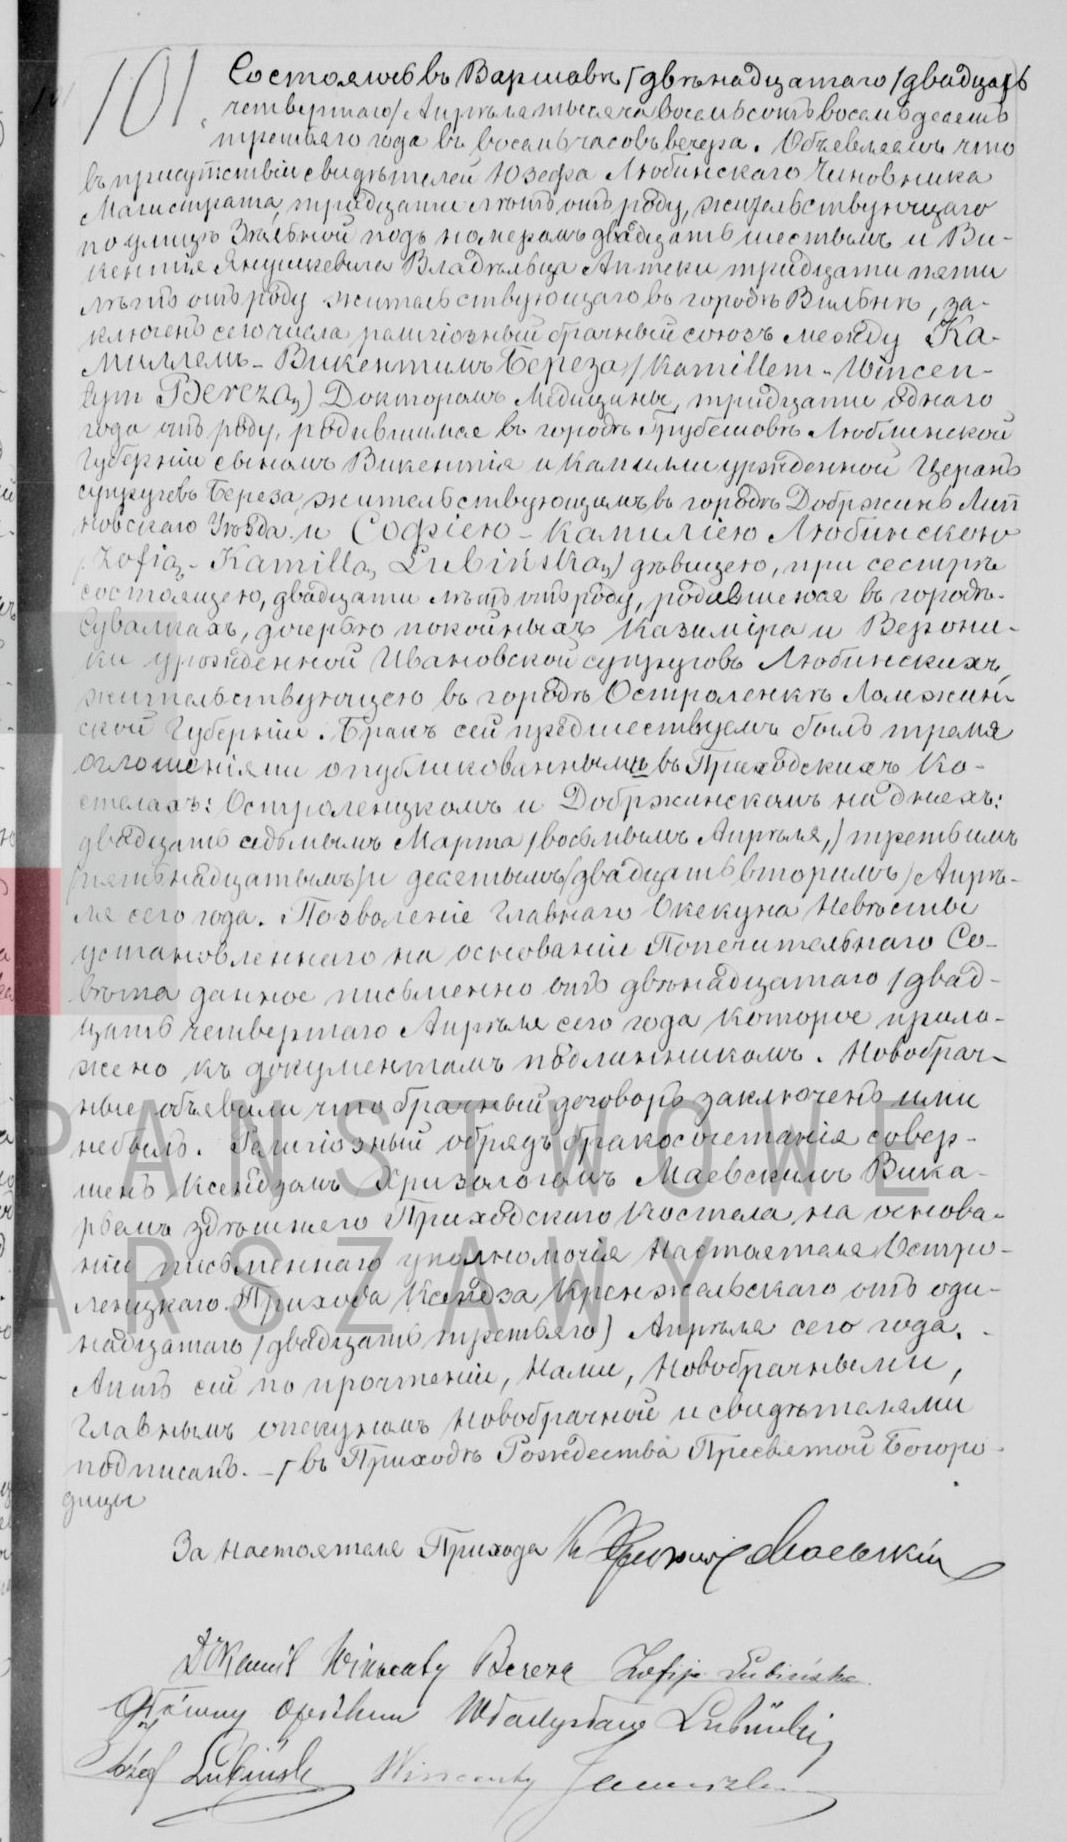 101.
Состоялось въ Варшавѣ / двѣнадцатаго / двадцать
четвертаго / Апрѣля тысяча восемьсотъ восемьдесятъ
третьяго года въ восемь часовъ вечера. Объявляемъ что
въ присутствіи свидѣтелей Юзефа Любинскаго Чиновника
Магистрата, тридцати лѣтъ отъ роду, жительствующаго
по улицѣ Згельной подъ номеромъ двадцать шестымъ и Ви-
кентія Янушкевича Владѣльца Аптеки тридцати пяти
лѣтъ отъ роду жительствующаго въ городѣ Вильнѣ, за-
ключенъ сего числа религіозный брачный союзъ между Ка-
милломъ - Викентимъ Береза / Kamillem - Wincen-
tym Berezą) Докторомъ Медицины, тридцати однаго
года отъ роду, родившимся въ городѣ Грубешовѣ Люблинской
Губерніи сыномъ Викентія и Камилли урожденной Церанъ
супруговъ Береза, жительствующимъ въ городѣ Добржинь Лип
новскаго Уѣзда и Софіею - Камиліею Любинскою
/ Zofią - Kamillą Lubińską) дѣвицею, при сестрѣ
состоящею, двадцати лѣтъ отъ роду, родившеюся въ городѣ
Сувалкахъ, дочерью покойныхъ Казиміра и Верони-
ки урожденной Ивановской супруговъ Любинскихъ,
жительствующею въ городѣ Остроленкѣ Ломжин-
ской Губерніи. Бракъ сей предшествуемъ былъ тремя
оглошеніями опубликованными въ Приходскихъ Ко-
стелахъ: Остроленцкомъ и Добржинскомъ на дняхъ:
двадцать седьмымъ Марта / восьмымъ Апрѣля,) третьимъ
/пятьнадцатымъ/ и десятымъ (двадцать вторымъ) Апрѣ-
ля сего года. Позволеніе Главнаго Опекуна Невѣсты
установленнаго на основаніи Попечительнаго Со-
вѣта данное письменно отъ двѣнадцатаго / двад-
цать четвертаго Апрѣля сего года которое прило-
жено къ документамъ подлинникомъ. Новобрач-
ные объявили что брачный договоръ заключенъ ими
небылъ. Религіозный обрядъ бракосочетанія совер-
шенъ Ксендзомъ Хризологомъ Маевскимъ Вика-
ріемъ здѣшняго Приходскаго Костела на основа-
ніи письменнаго уполномочія Настоятеля Остро-
ленцкаго Прихода Ксендза Кренжельскаго отъ оди-
надцатаго / двадцать третьяго) Апрѣля сего года. -
Актъ сей по прочтеніи, Нами, Новобрачными,
Главнымъ опекуномъ Новобрачной и свидѣтелями
подписанъ. - / въ Приходѣ Рождества Пресвятой Богоро-
дицы
За Настоятеля Прихода К. Хризологъ Маевскій
Dr Kamil Wincenty Bereza Zofija Lubińska
Główny Opiekun Władysław Lubiński
Józef Lubiński Wincenty
PAŃSTWOWE
ARSZAWY